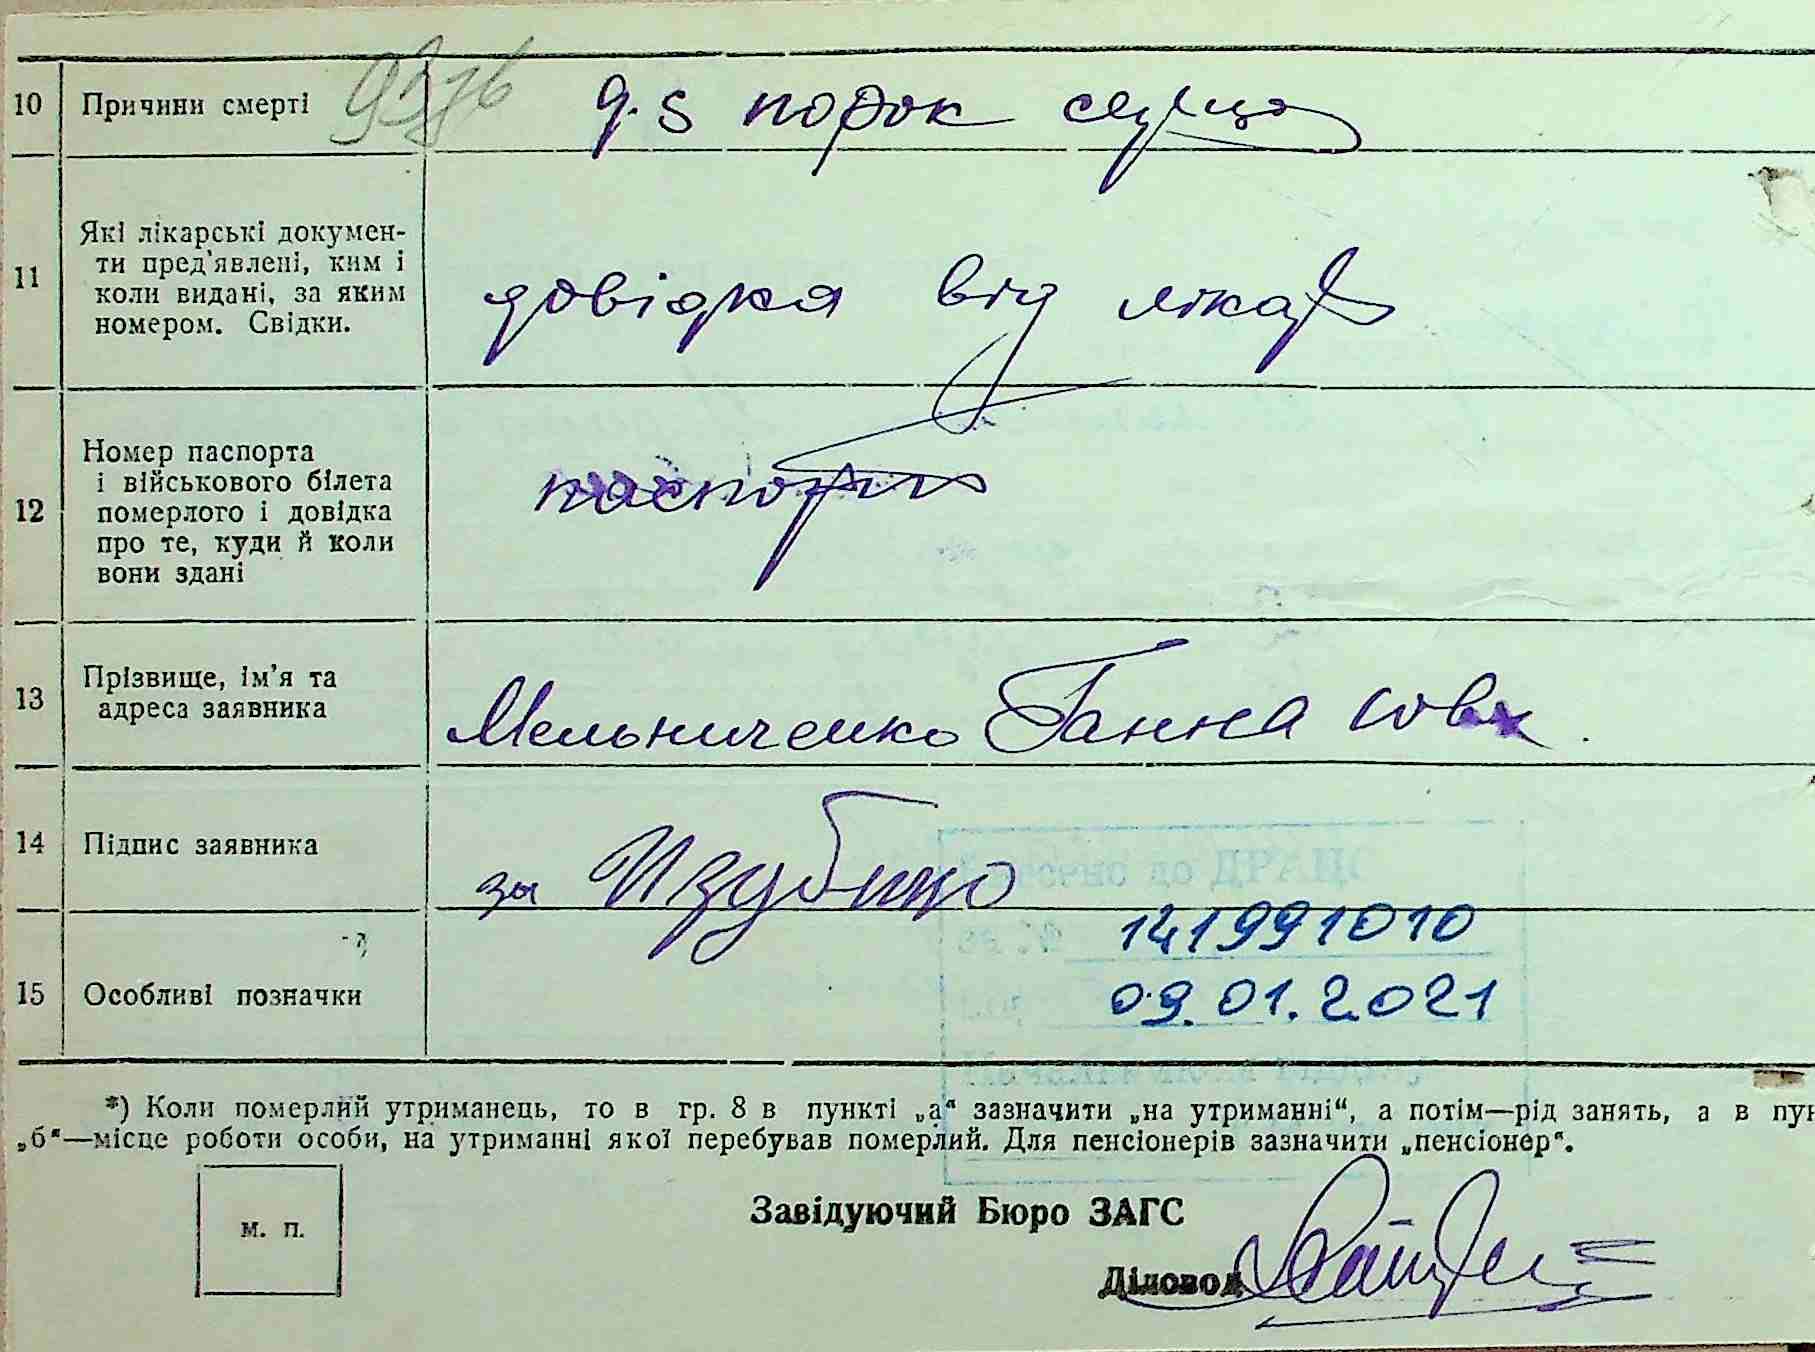 10 Причини смерті д. s порок серця
11 Які лікарські докумен-
ти пред'явлені, ким і
коли видані, за яким
номером. Свідки.
довідка від лікаря
12 Номер паспорта
і військового білета
померлого і довідка
про те, куди й коли
вони здані
паспорт
13 Прізвище, ім'я та
адреса заявника
Мельниченко Ганна
14 Підпис заявника
за
141991010
15 Особливі позначки
09.01.2021
*) Коли померлий утриманець, то в гр. 8 в пункті „а“ зазначити „на утриманні“, а потім—рід занять, а в пун
„б“—місце роботи особи, на утриманні якої перебував померлий. Для пенсіонерів зазначити „пенсіонер“.
м. п.
Завідуючий Бюро ЗАГС
Діловод